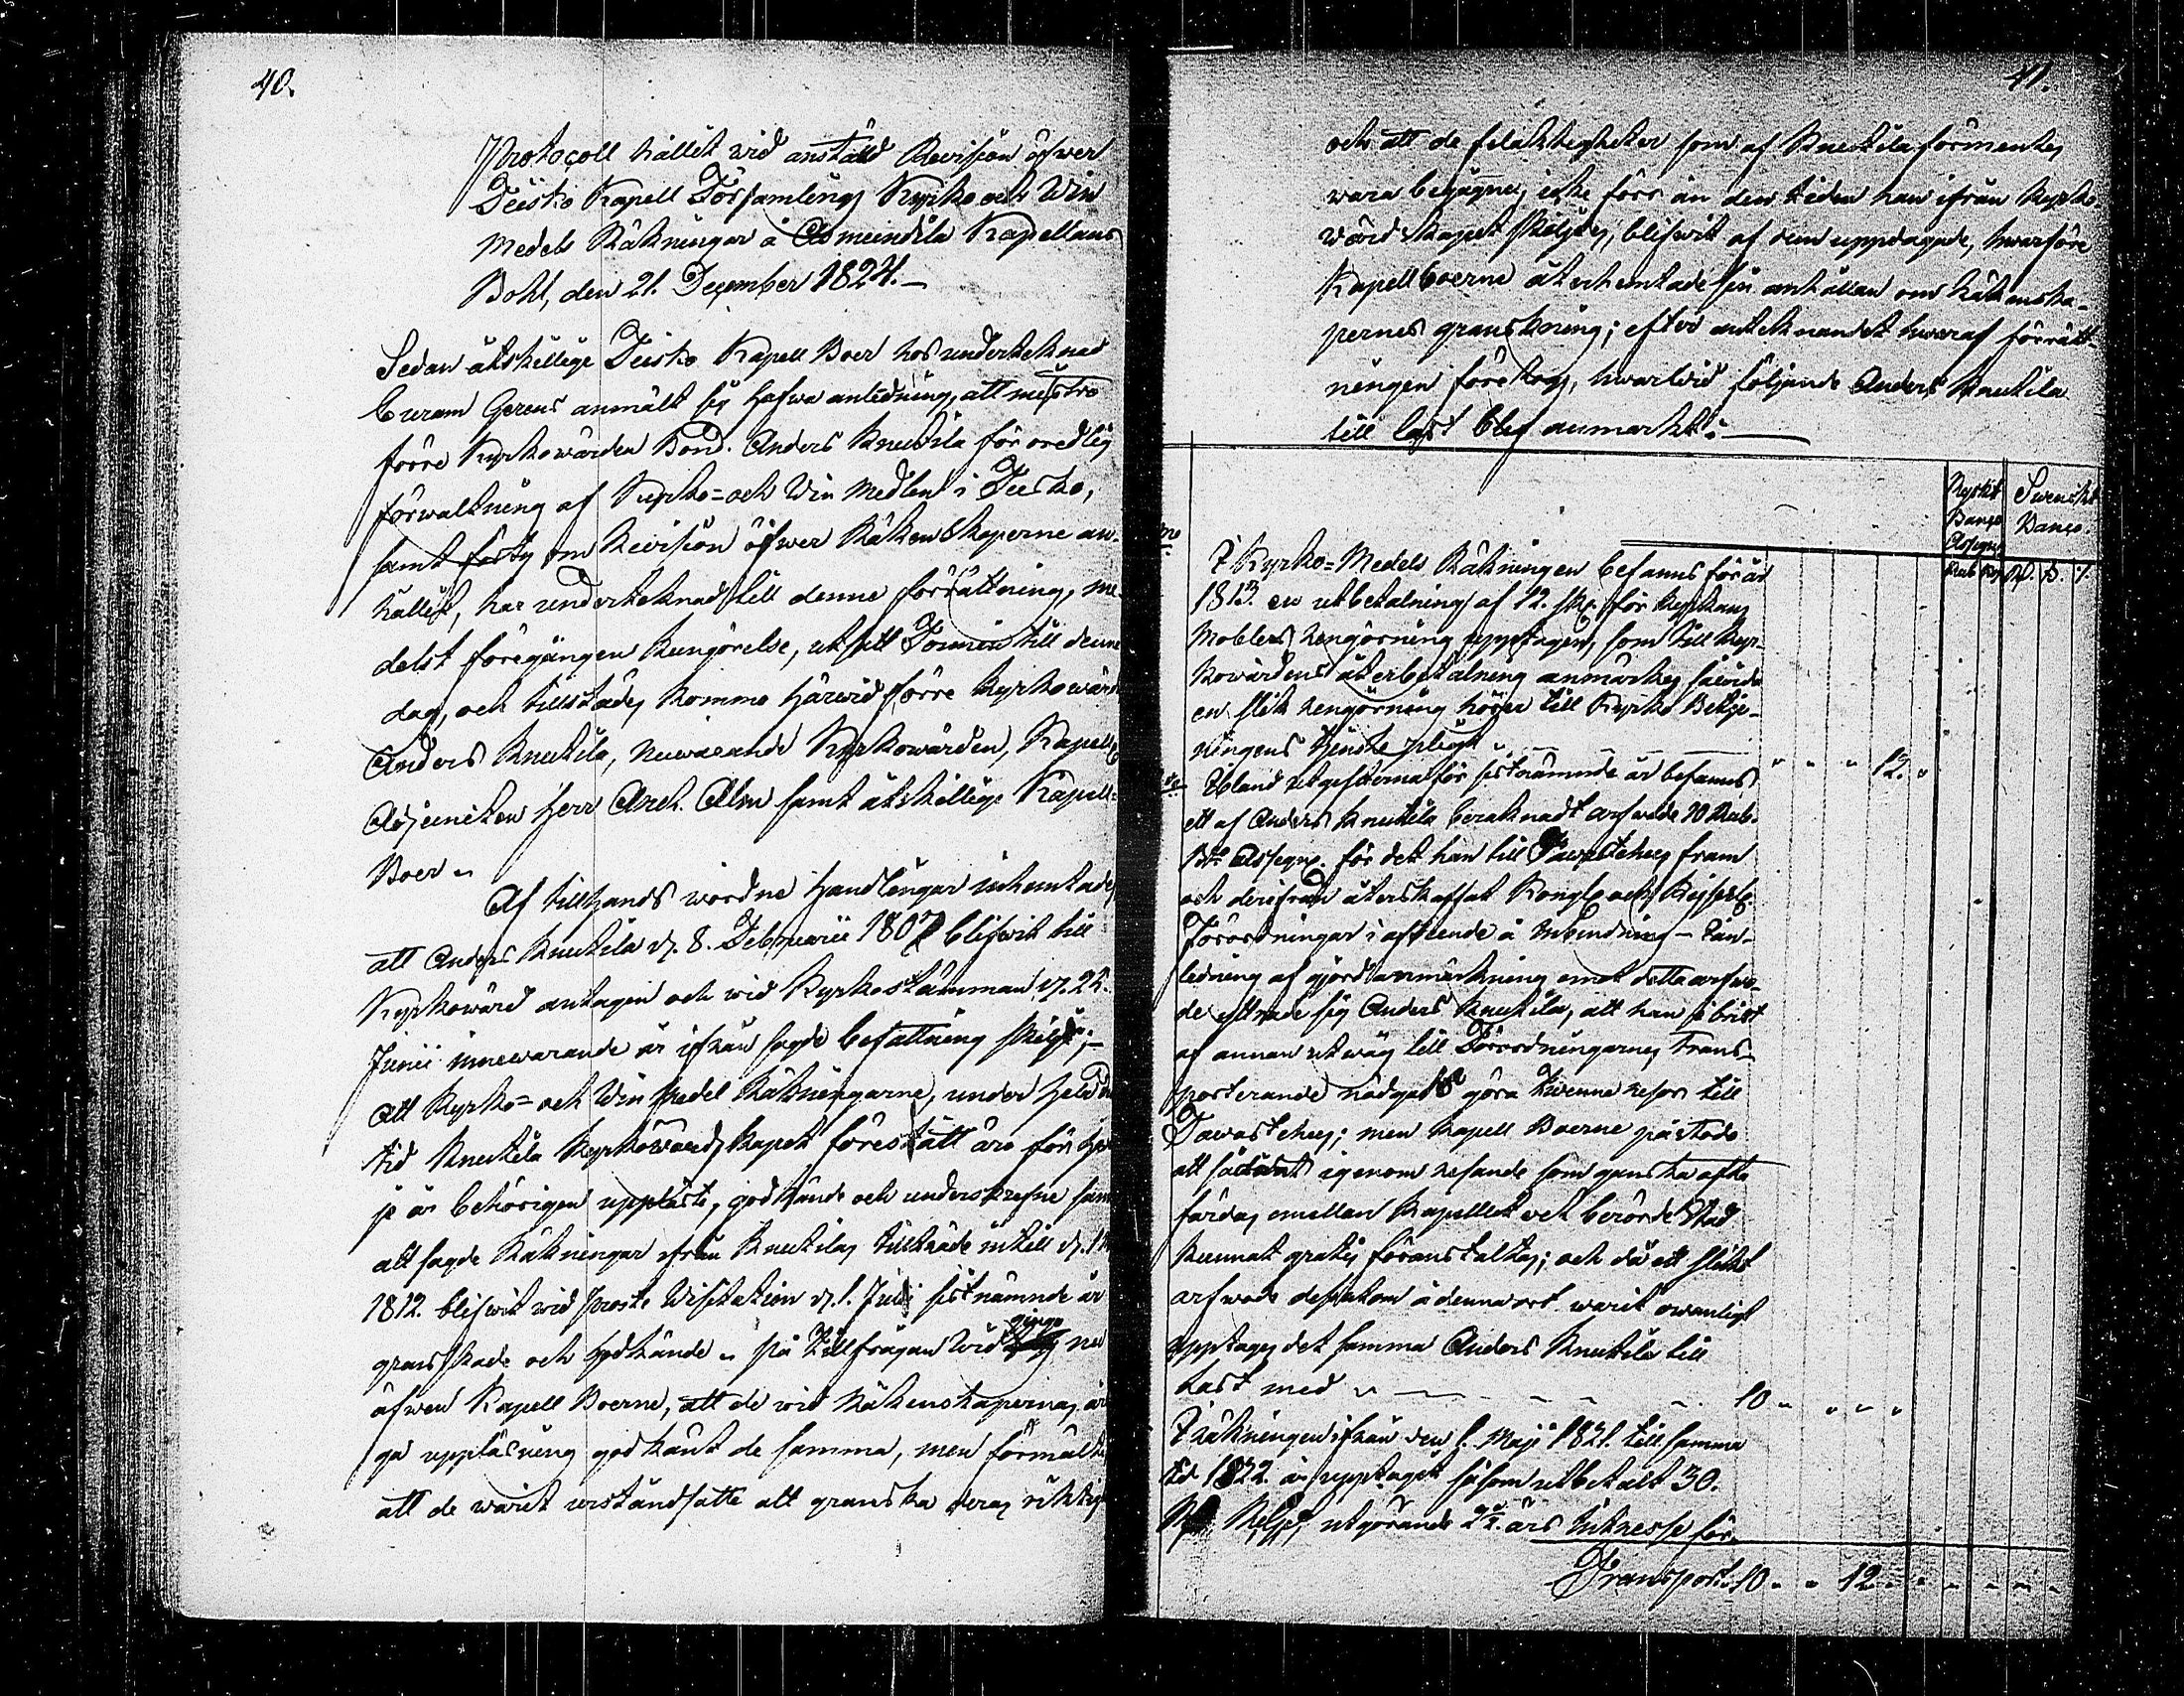 40.
Protocoll hållit wid anställd Revision öfwer
Teisko Kapell Församlings Kyrko och Win
Medels Räkningar å Asmeindila Kapellans
Bohl, den 21. December 1824.—
Sedan åtskillige Teisko Kapell Boer hos undertecknad
Curam Gerens anmält sig hafwa anledning, att misstro
förre Kyrkowärden Bond. Anders Knuutila för oredlig
förwaltning af Kyrko=och Win Medlen i Teisko,
samt om Revision öfwer Räkenskaperne an-
hållit, har undertecknad till denne förrättning, me-
delst föregången kungörelse, utsatt Termin till denne
dag, och tillstädes kommo härwid förre Kyrkowärd
Anders Knuutila, nuwarande Kyrkowärden, Kapells
Adjuncten Herr Arch. Alm samt åtskillige Kapell=
Boer.
Af tillhands wordne Handlingar inhemtades
att Anders Knuutila d. 8. Februarii 1807 blifwit till
Kyrkowärd antagen och wid Kyrkostämman d. 22.
Junii innewarande år ifrån sagde befattning skilgd;—
att Kyrko=och Win Medel Räkningarne, under hela den
tid Knuutila Kyrkowärdskapet förestått äro för hwar
je år behörigen uppläste, godkände och underskrefne samt
att sagde Räkningar ifrån Knuutilas tillträde intill d. 1
1812. blifwit wid Prosts Visitation d. 1. Julii sistnämnde år
granskade och godkände. På tillfrågan widgingo nu
äfwen Kapell Boerne, att de wid Räkenskapernas år
ga uppläsning godkänt de samma, men förmälte
att de warit urståndsatte att granska deras riktig
41.
och att de felaktigheter som af Knuutila förmentes
wara begagne, icke förr än den tiden han ifrån Kyrko-
wärdskapet skiljdes, blifwit af dem uppdagade, hwarföre
Kapellboerne återhemtade sin anhållan om Räkenska-
pernes granskning; efter antecknandet hwaraf förrätt-
ningen företogs, hwarwid följande Anders Knuutila
till last blef anmärkt:
Ryskt Banco Assigne
Swenskt Banco.
Rub. Kop. R. s. r.
mo
I Kyrko=Medels Räkningen befanns för år
1813. en utbetalning af 12. sk. för Kyrkans
Moblers rengörning upptagen, som till Kyr-
kowärdens återbetalning anmärkes såwida
en slik rengörning hörer till Kyrko Betje-
ningens tjenste pligt " " " 12. "
do Ibland utgifterna för sistnämnde år befanns
ett af Anders Knuutila beräknadt arfwode 10 Rub.
Bco Assigne. för det han till Tawastehus fram
och derifrån återskaffat Kongl. och Kejserl.
Förordningar i afseende å inbindning — I an-
ledning af gjord anmärkning emot detta arfwo-
de yttrade sig Anders Knuutila, att han i brist
af annan utwäg till Förordningarnes trans-
porterande nödgats göra twenne resor till
Tawastehus; men Kapell Boerne påstodo
att sådant igenom resande som ganska ofta
färdas emellan Kapellet och berörde Stad
kunnat gratis föranstaltas; och då ett slikt
arfwode dessutom å denna ort warit owanligt
upptages det samma Anders Knuutila till
last med " — — — — 10 " " " "
I Räkningen ifrån den 1. Maji 1821. till samma
tid 1822. är upptaget såsom utbetalt 30.
utgörande 2½ års Intresse för
Transport 10 " " 12 " " " " "